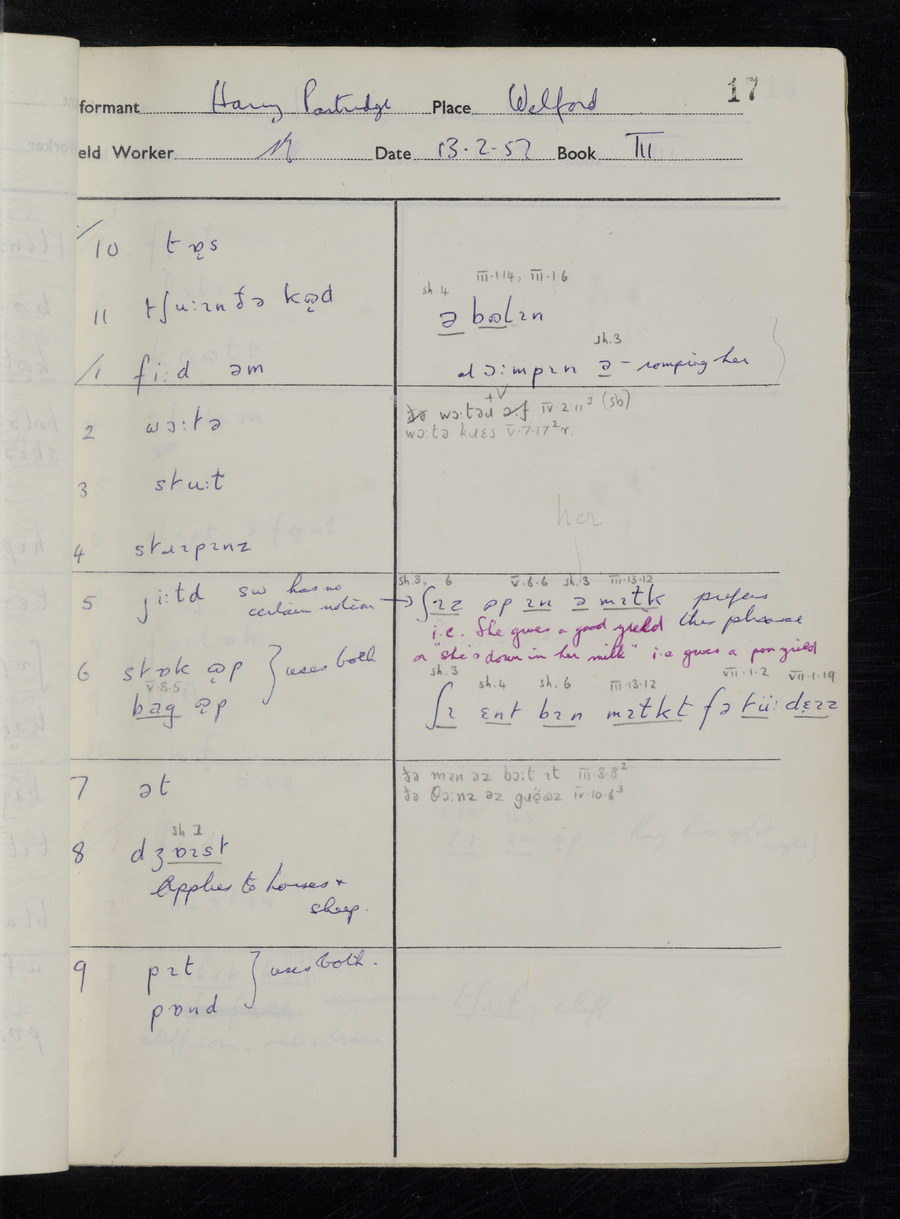 17
formant Harry Partridge Place Welford
eld Worker Date 13.2.57 Book III
/10 tɒ̜s
11 tʃuːɪn ðə kə̜d
III·1·14, III·1·6
sh.4
ə bʊlɪn
sh.3
ə – romping her
/1 fiːd əm
2 wɔːtə
wɔːtəd IV·2·11³ (sb)
wɔːtə kɹɛs V·7·17²r.
3 stɹuːt
4 stɹɪpɪnz
her
5 jiːld sw has no
certain notion →
sh.3, 6 V·6·6 sh.3 III·13·12
ʃɪz ɒp ɪn ə mɪlk prefers
this phrase
i.e. She gives a good yield
or "she's down in her milk" i.e gives a poor yield
6 stɒk ə̜p } uses both
V·8·5
bag ə̜p
sh.3 sh.4 sh.6 III·13·12 VII·1·2 VII·1·19
ʃɪ ɛnt bɪn mɪlkt fə tüː dɛɪz
7 ət
ðə man əz bɔːt ɪt III·8·8²
ðə θɔːnz əz IV·10·6³
sh.I
8 dʒɒɪst
Applies to horses +
sheep.
9 pɪt } uses both.
pɒnd